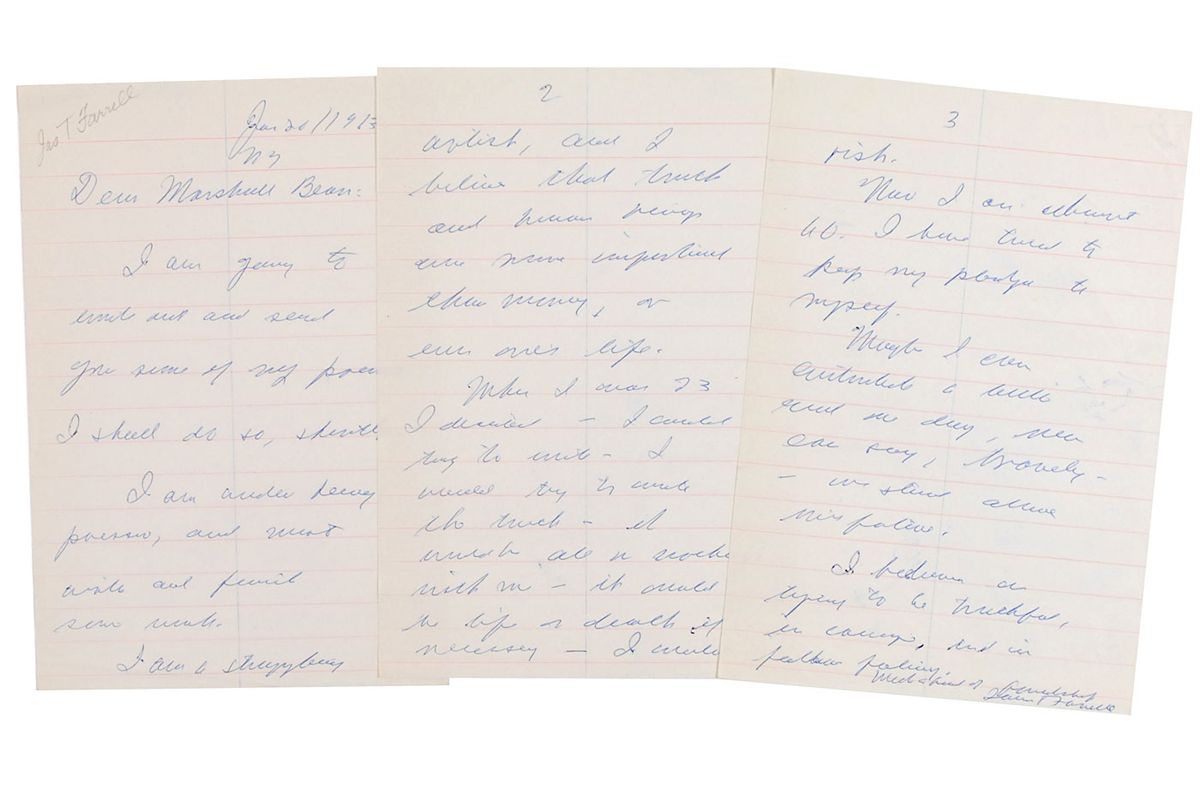 Jas T Farrell
Jan 20/1963
NY
Dear Marshall Bean:
I am going to
write out and send
you some of my poem
I shall do so, shortl
I am under heavy
pressure, and must
write and finish
some work.
I am a struggling
2
artist, and I
believe that truth
and human beings
are more important
than money, or
even one's life.
When I was 23
I decided – I would
try to write – I
would try to write
the truth – it
would be all or nothi
with me – it would
be life or death if
necessary – I would
3
risk.
Now I am almost
60. I have tried to
keep my pledge to
myself.
Maybe I can
contribute a little
and one day, men
can say, bravely –
– we stand alone
I believe in
trying to be truthful,
in courage, and in
fellow feeling.
With of friendship
James T Farrell